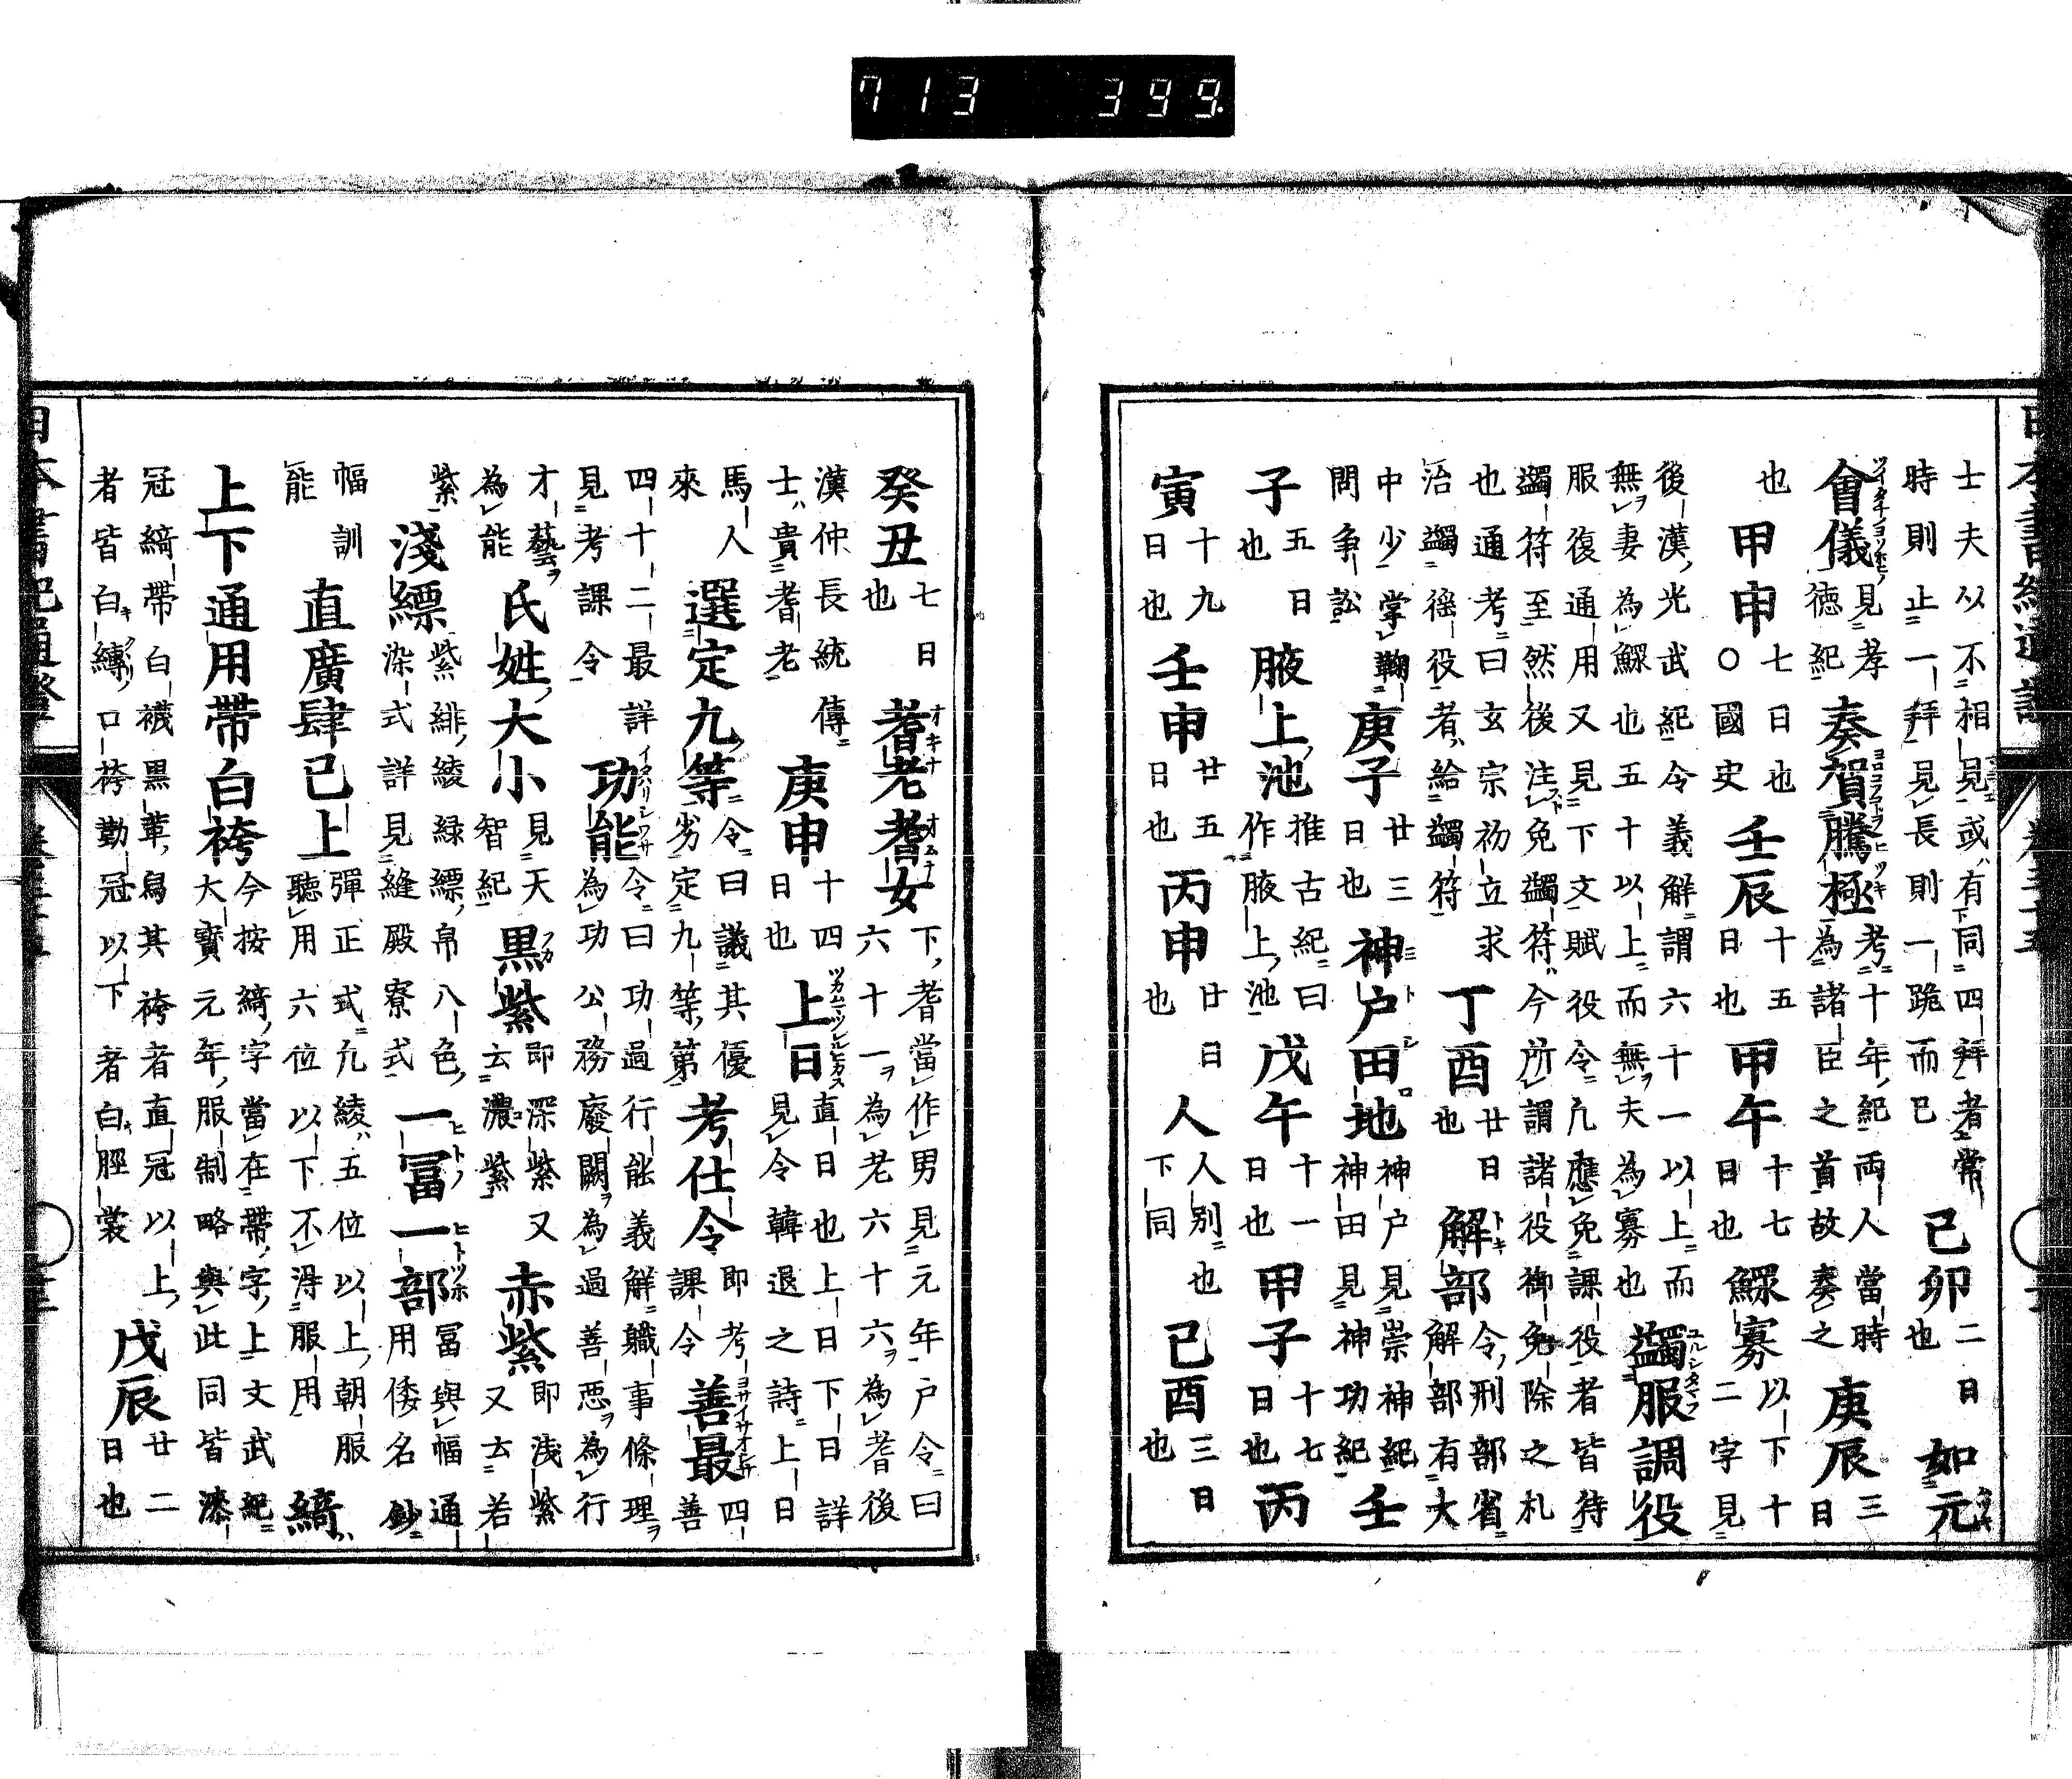 713 399.
士夫以不相見或有同四拜者常時則止一拜見長則一跪而已 己卯 二日也 如元
會儀 見孝徳紀 奏賀騰極 考十年紀兩人當時為諸臣之首故奏之 庚辰 三日
也 甲申 七日也〇國史 壬辰 十五日也 甲午 十七日也 鰥寡 以下十二字見
後漢光武紀令義解謂六十一以上而無妻為鰥也五十以上而無夫為寡也 蠲服調役
服復通用又見下文賦役令凡應免課役者皆待蠲符至然後注免蠲符今所謂諸役御免除之札
也通考曰玄宗初立求治蠲徭役者給蠲符 丁酉 廿日也 解部 令刑部省解部有大
中少掌鞫問争訟 庚子 廿三日也 神戸田地 神戸見崇神紀神田見神功紀 壬
子 五日也 腋上池 推古紀曰作腋上池 戊午 十一日也 甲子 十七日也 丙
寅 十九日也 壬申 廿五日也 丙申 廿日也 人 人別也下同 己酉 三日也
癸丑 七日也 耆老耆女 下耆當作男見元年戸令曰六十一為老六十六為耆後
漢仲長統傳士貴耆老 庚申 十四日也 上日 直日也上日下日詳見令韓退之詩上日
馬人來 選定九等 令曰議其優劣定九等第 考仕令 即考課令 善最 四善
四十二最詳見考課令 功能 令曰功過行能義解職事條理為功公務廢闕為過善惡為行
才藝為能 氏姓大小 見天智紀 黒紫 即深紫又云濃紫 赤紫 即浅紫又云若
紫 淺縹 紫緋綾緑縹帛八色染式詳見縫殿寮式 一冨一部 冨與幅通用倭名鈔
幅訓能 直廣肆已上 彈正式凡綾五位以上朝服聽用六位以下不得服用 綺
上下通用帶白袴 今按綺字當在帶字上文武紀大寶元年服制略與此同皆漆
冠綺帶白襪黒革舄其袴者直冠以上者皆白縛口袴勤冠以下者白脛裳 戊辰 廿二日也